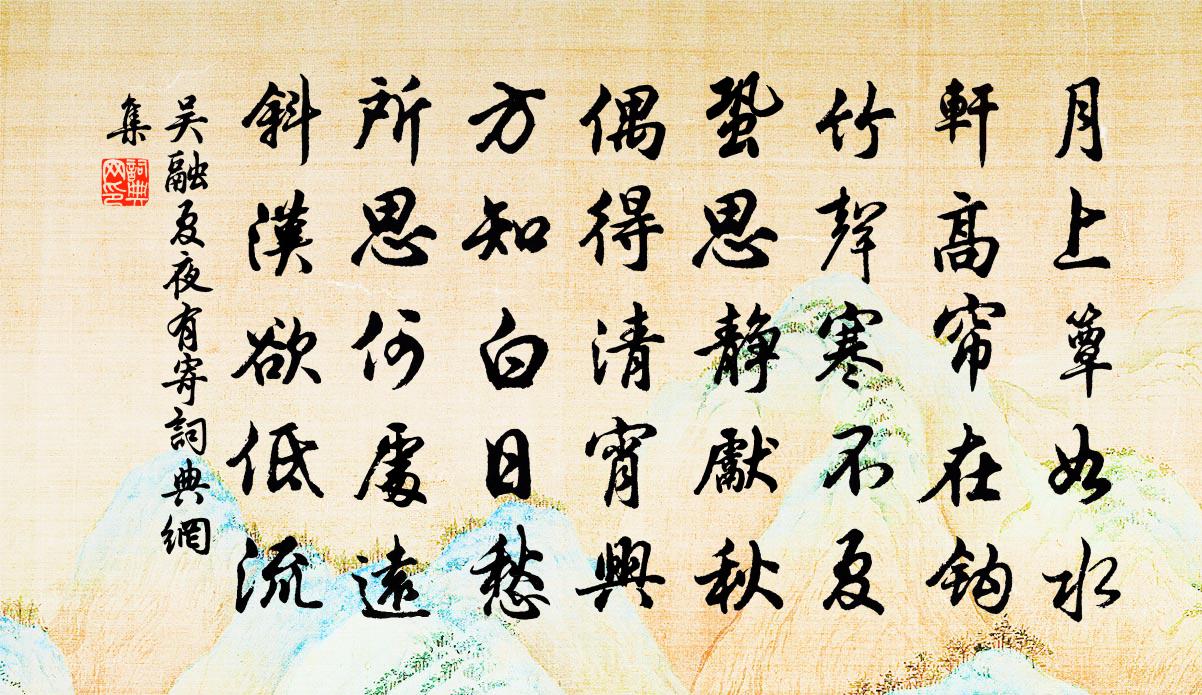 月上簟如水
軒高帘在鈎
竹聲寒不夏
蛩思靜獻秋
偶得清宵興
方知白日愁
所思何處遠
斜漢欲低流
吴融夏夜有寄詞典網
集
詞典
网印